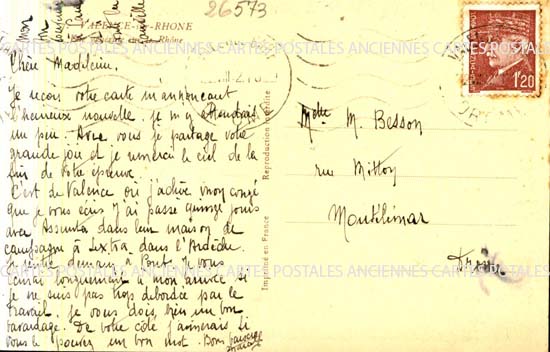 26573
VALENCE-sur-RHONE
Chère Madeleine.
Je reçois votre carte m'annonçant
l'heureuse nouvelle, je m'y attendais
un peu. Avec vous je partage votre
grande joie et je remercie le ciel de la
fin de votre épreuve.
C'est de Valence où j'achève mon congé
que je vous écris. J'ai passé quinze jours
avec Assunta dans leur maison de
campagne à Lextra dans l'Ardèche.
Je rentre demain à Bont. Je vous
écrirai longuement à mon arrivée si
je ne suis pas trop débordée par le
travail. Je vous dois bien un bon
bavardage. De votre côté j'aimerais si
vous le pouvez un bon mot. Bons baisers
Imprimé en France
Reproduction interdite
Melle M. Besson
rue
Montélimar
Drôme
1F20
CARTES POSTALES ANCIENNES CARTES POSTALES ANCIENNES CARTES POSTALES ANCIENNES